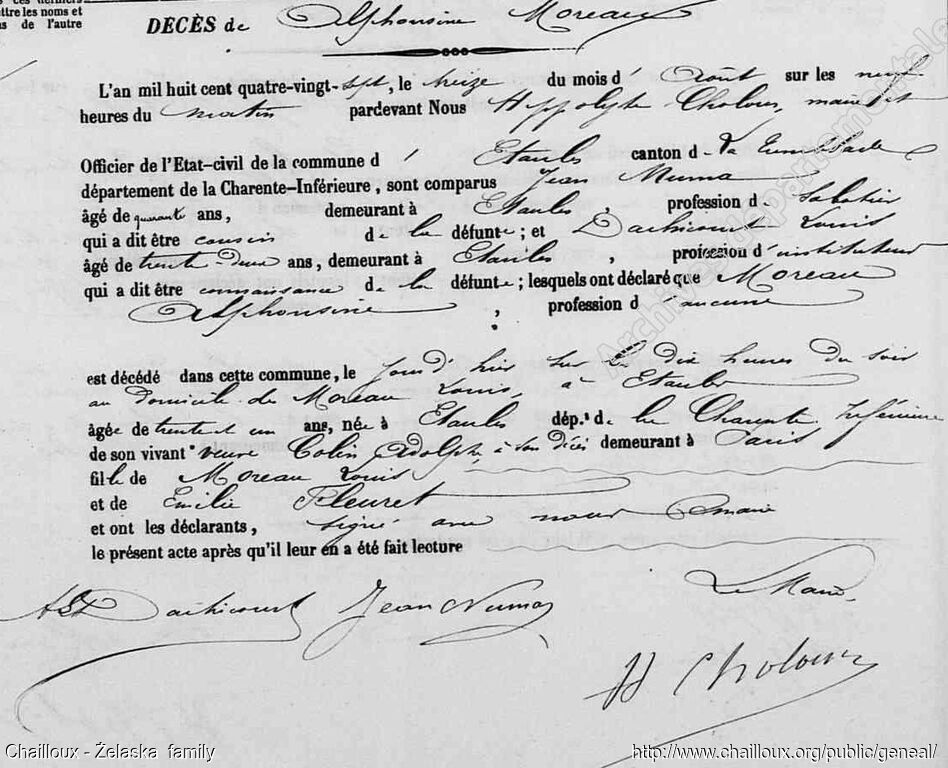 ttre les noms et
s de l'autre
DECÈS de Alphonsine Moreau
L'an mil huit cent quatre-vingt-sept, le treize du mois d' Août sur les neuf
heures du matin pardevant Nous Hippolyte Choloux, maire et
Officier de l'Etat-civil de la commune d' Etaules canton de La Tremblade
département de la Charente-Inférieure, sont comparus Jean Numa
âgé de quarante ans, demeurant à Etaules, profession de Sabotier
qui a dit être cousin de la défunte; et Dachicourt Louis
âgé de trente deux ans, demeurant à Etaules, profession d'instituteur
qui a dit être connaissance de la défunte; lesquels ont déclaré que Moreau
Alphonsine, profession d'aucune
est décédé dans cette commune, le jour d'hier sur les dix heures du soir
au domicile de Moreau Louis, à Etaules
âgée de trente et un ans, née à Etaules dép.t de la Charente Inférieure
de son vivant veuve Colin Adolphe, à son décès demeurant à Paris
fille de Moreau Louis
et de Emilie Fleuret
et ont les déclarants, signé avec nous Maire
le présent acte après qu'il leur en a été fait lecture
Dachicourt Jean Numa Le Maire,
H Choloux
Archives départementales
Chailloux - Želaska family http://www.chailloux.org/public/geneal/